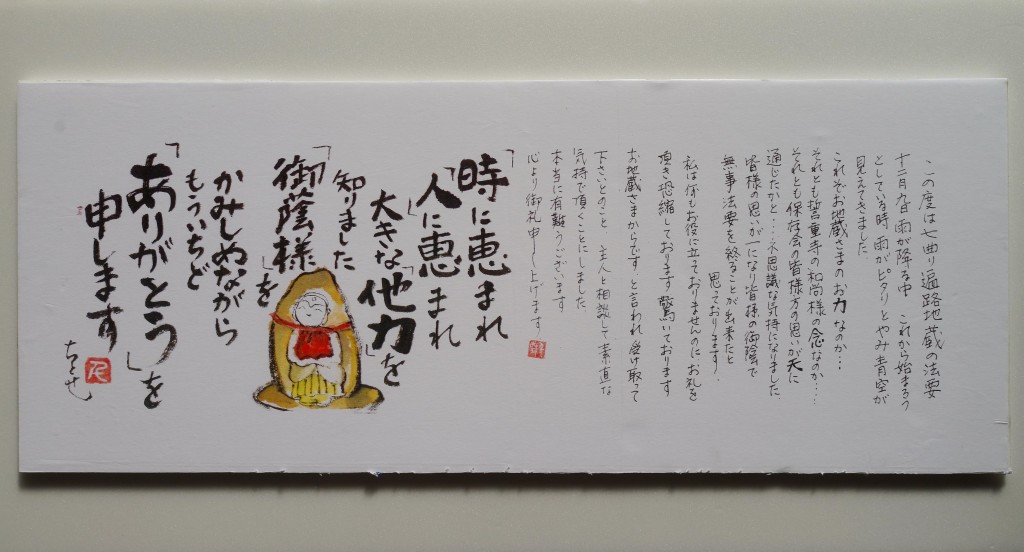 この度は七曲り遍路地蔵の法要
十二月九日 雨が降る中 これから始まろう
としている時 雨がピタリとやみ青空が
見えてきました
これぞお地蔵さまのお力なのか…
それとも誓重寺の和尚様の念なのか….
それとも保社会の皆様方の思いが天に
通じたかと…不思議な気持になりました
皆様の思いが一になり皆様の御陰で
無事法要を終ることが出来たと
思っております.
私は何もお役に立っておりませんのにお礼を
頂き恐縮しております 驚いております
お地蔵さまからです と言われ 受け取って
下さいとのこと 主人と相談して素直な
気持で頂くことにしました
本当に有難うございます
心より御礼申し上げます
「時に恵まれ
「人に恵まれ
大きな「他力」を
知りました
「御蔭様」を
かみしめながら
もういちど
「ありがとう」を
申します
ちとせ